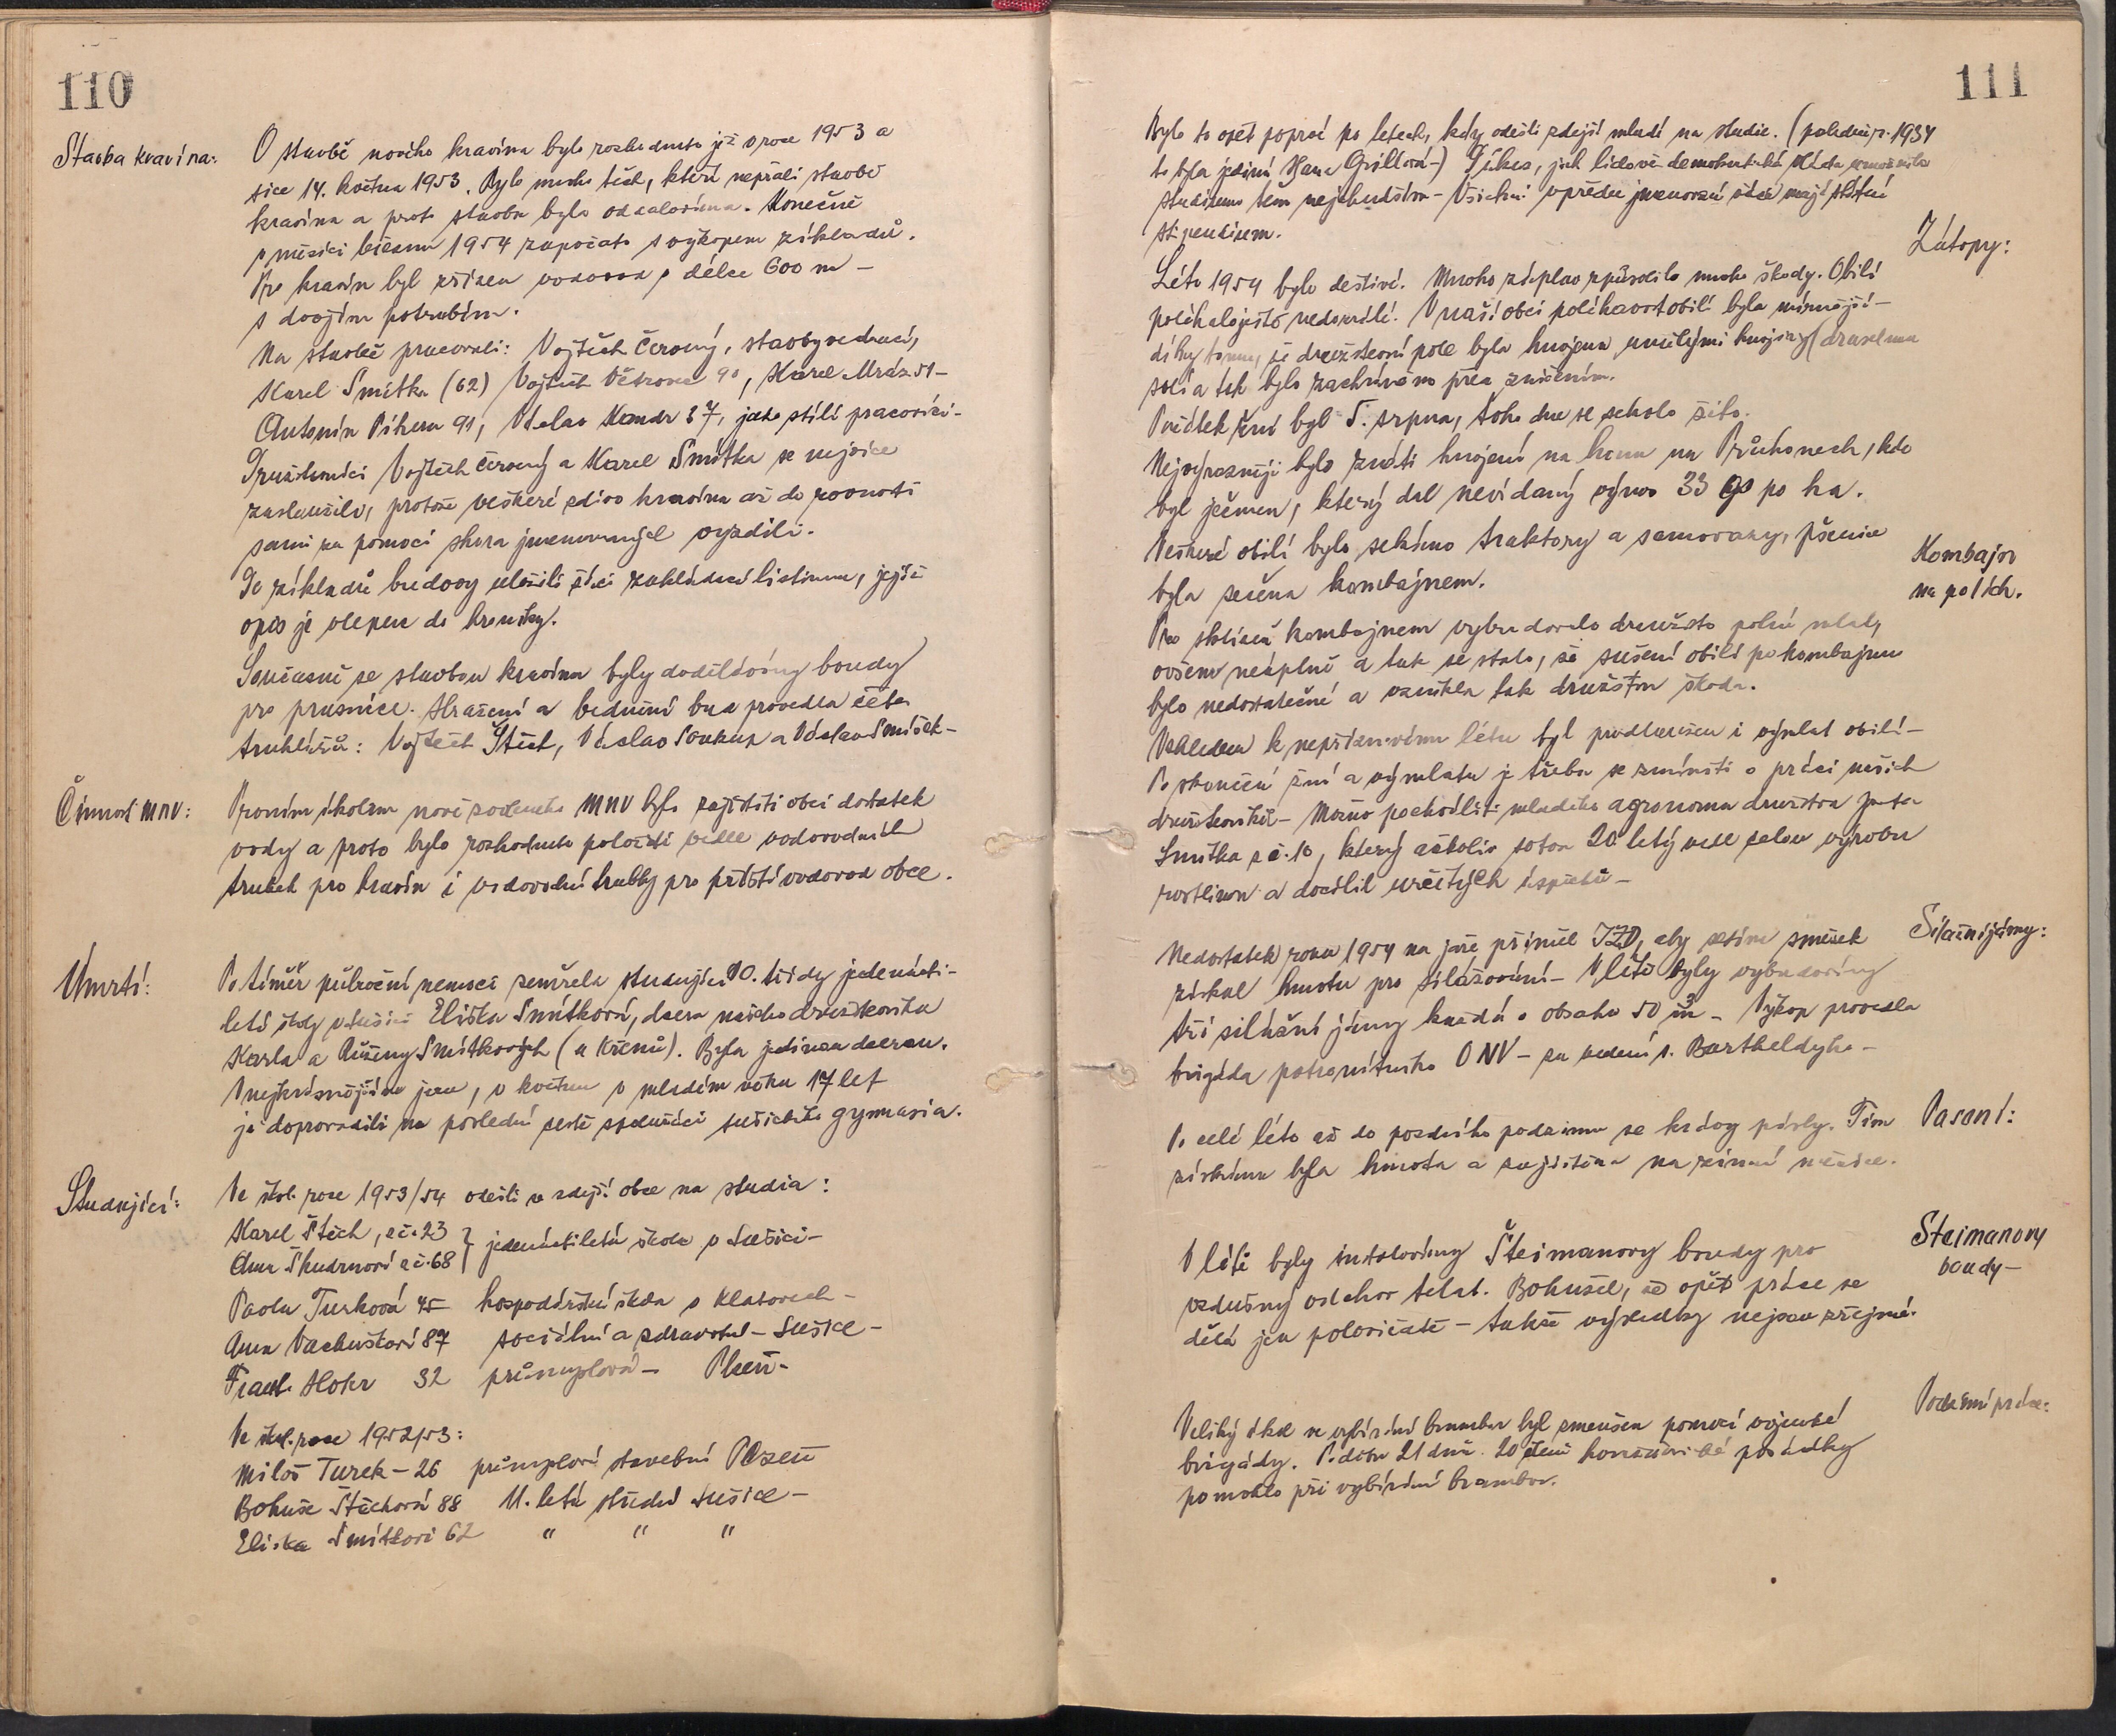 110
Stavba kravína:
O stavbě nového kravína bylo rozhodnuto již v roce 1953 a
sice 14. května 1953. Bylo mnoho těch, kteří nepřáli stavbě
kravína a proto stavba byla oddalována. Konečně
v měsíci březnu 1954 započato s výkopem základů.
Pro kravín byl zřízen vodovod v délce 600 m –
s dvojím potrubím.
Na stavbě pracovali: Vojtěch Červený, stavbyvedoucí,
Karel Smítka (62) Vojtěch Větrovec 90, Karel Mráz 51 –
Antonín Pihera 91, Václav Kandr 37, jako stálí pracovníci –
Družstevníci Vojtěch Červený a Karel Smítka se nejvíce
zasloužilo, protože veškeré zdivo kravína až do rovnosti
sami za pomoci shora jmenovaných vyzdili.
Do základů budovy uložili žáci zakládací listinu, jejíž
opis je vlepen do kroniky.
Současně se stavbou kravína byly dodělávány boudy
pro prasnice. Hrazení a bednění bud provedla četa
truhlářů: Vojtěch Štěch, Václav Soukup a Václav Smíšek –
Činnost MNV:
Prvním úkolem nově zvoleného MNV bylo zajistiti obci dostatek
vody a proto bylo rozhodnuto položiti vedle vodovodních
trubek pro kravín i vodovodní trubky pro příští vodovod obce.
Úmrtí:
Po téměř půlroční nemoci zemřela studující 10. třídy jedenácti-
leté školy v Sušici Eliška Smítková, dcera našeho družstevníka
Karla a Růženy Smítkových (u Křenů). Byla jedinou dcerou.
V nejkrásnějším jaru, v květnu v mladém věku 17 let
ji doprovodili na poslední cestě spolužáci sušického gymnasia.
Studující:
Ve škol. roce 1953/54 odešli ze zdejší obce na studia:
Karel Štěch, z č. 23 } jedenáctiletá škola v Sušici –
Anna Skudrnová z č. 68
Pavla Turková 45 hospodářská škola v Klatovech –
Anna Vachuškova 87 sociální a zdravotní – Sušice –
Frant. Hokr 32 průmyslová – Plzeň –
Ve škol. roce 1952/53:
Miloš Turek – 26 průmyslová stavební Plzeň
Bohuše Štěchová 88 11. letá střední Sušice –
Eliška Smítková 62 " " "
111
Bylo to opět poprvé po letech, kdy odešli zdejší mladí na studie. (poledníp. 1934
to byla jediná Hana Grillová –) Důkaz, jak lidově demokratická vláda umožnila
studium těm nejchudším – Všichni vpředu jmenovaní žáci mají státní
stipendium.
Zátopy:
Léto 1954 bylo deštivé. Mnoho záplav způsobilo mnoho škody. Obilí
poléhalo ještě nedozrálé. V naší obci poléhavost obilí byla mírnější –
díky tomu, že družstevní pole byla hnojena umělými hnojivy (draselnou
solí a tak bylo zachráněno před zničením.
Počátek žní byl 5. srpna, toho dne se sekalo žito.
Nejvýrazněji bylo znáti hnojení na honu na Průhonech, kde
byl ječmen, který dal nevídaný výnos 33 q po ha.
Veškeré obilí bylo sekáno traktory a samovazy, pšenice
byla sečena kombajnem.
Kombajn
na polích.
Pro sklizeň kombajnem vybudovalo družstvo polní mlaty
ovšem neúplně a tak se stalo, že sušení obilí po kombajnu
bylo nedostatečné a vznikla tak družstvu škoda.
Vzhledem k nepříznivému létu byl prodloužen i výmlat obilí –
Po skončení žní a výmlatu je třeba se zmíniti o práci našich
družstevníků – Možno pochválit mladého agronoma družstva
Smítka z č. 10, který ačkoliv sotva 20 letý vedl celou výrobu
rostlinnou a docílil určitých úspěchů –
Silážní jámy:
Nedostatek roku 1954 na jaře přiměl JZD, aby setím směsek
získal hmotu pro silážování – V létě byly vybudovány
tři silážní jámy každá o obsahu 50 m³ – Výkop provedla
brigáda patronátního ONV – za vedení s. Bartheldyho –
Pasení:
Po celé léto až do pozdního podzimu se krávy pásly. Tím
získána byla hmota a zajištěna na zimní měsíce.
Šteimanovy
boudy –
V létě byly instalovány Šteimanovy boudy pro
vzdušný odchov telat. Bohužel, že opět práce se
dělá jen polovičatě – takže výsledky nejsou zřejmé.
Podzimní práce:
Veliký úkol ve vybírání brambor byl zmenšen pomocí vojenské
brigády. Po dobu 21 dnů 20 členů posádky
pomohlo při vybírání brambor.